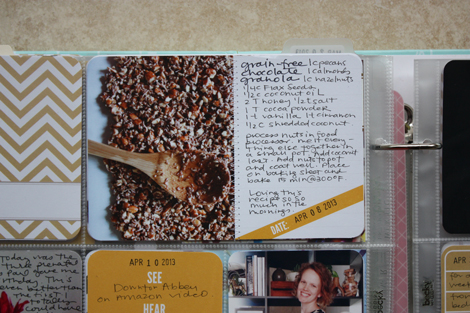 grain-free 1 c pecans
chocolate 1 c almonds
granola 1 c hazelnuts
1/4 c Flax Seeds
1/2 c coconut oil
2 T honey 1/2 t salt
1 T cocoa powder
1 t vanilla 1 t cinnamon
1 1/2 c shredded coconut
process nuts in food
processor. melt every-
thing else together in
a small pot. Add coconut
last. Add nuts to pot
and coat well. Place
on baking sheet and
bake 15 min @300°F.
Loving this
recipe so so
much in the
mornings
DATE: APR 08 2013
Today was the
APR 10 2013
SEE
Downton Abbey
on Amazon video
HEAR